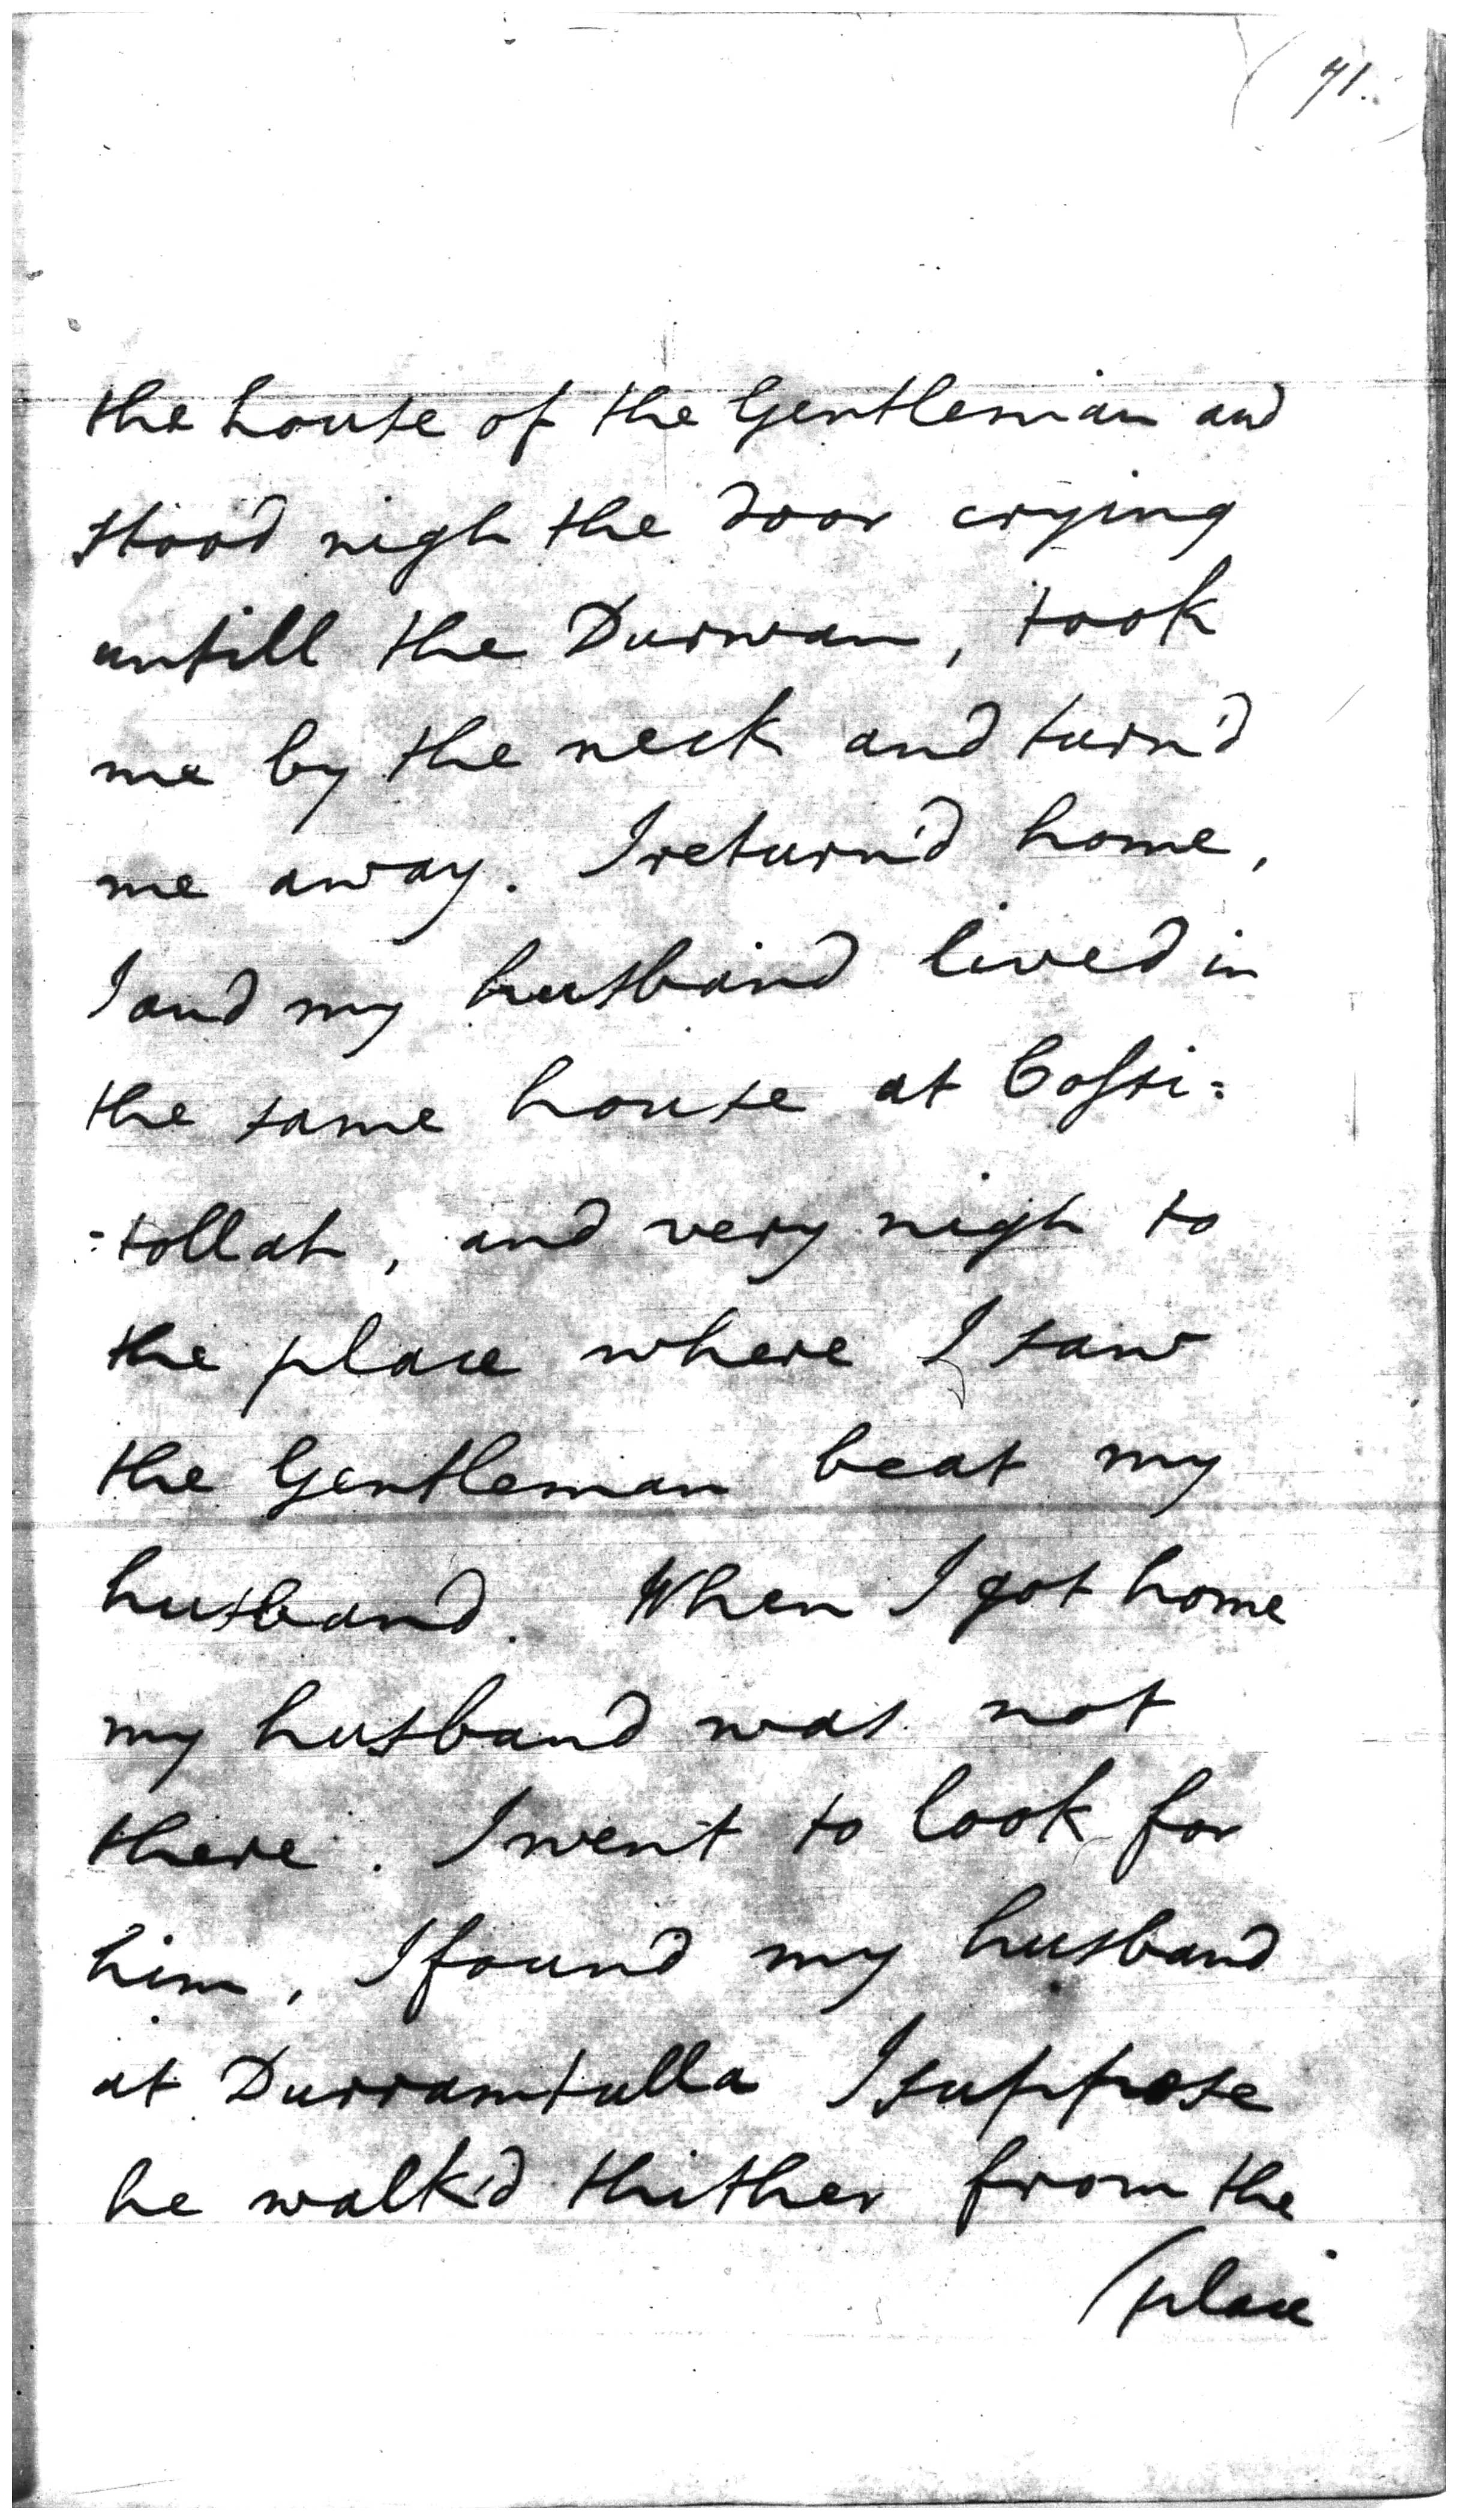 (41.)
the house of the Gentleman and
stood nigh the door crying
untill the Durwan, took
me by the neck and turn'd
me away. I return'd home,
I and my husband lived in
the same house at Cossi=
=tollah, and very nigh to
the place where I saw
the Gentleman beat my
husband. When I got home
my husband was not
there. I went to look for
him, I found my husband
at Durramtulla I suppose
he walk'd thither from the
(place